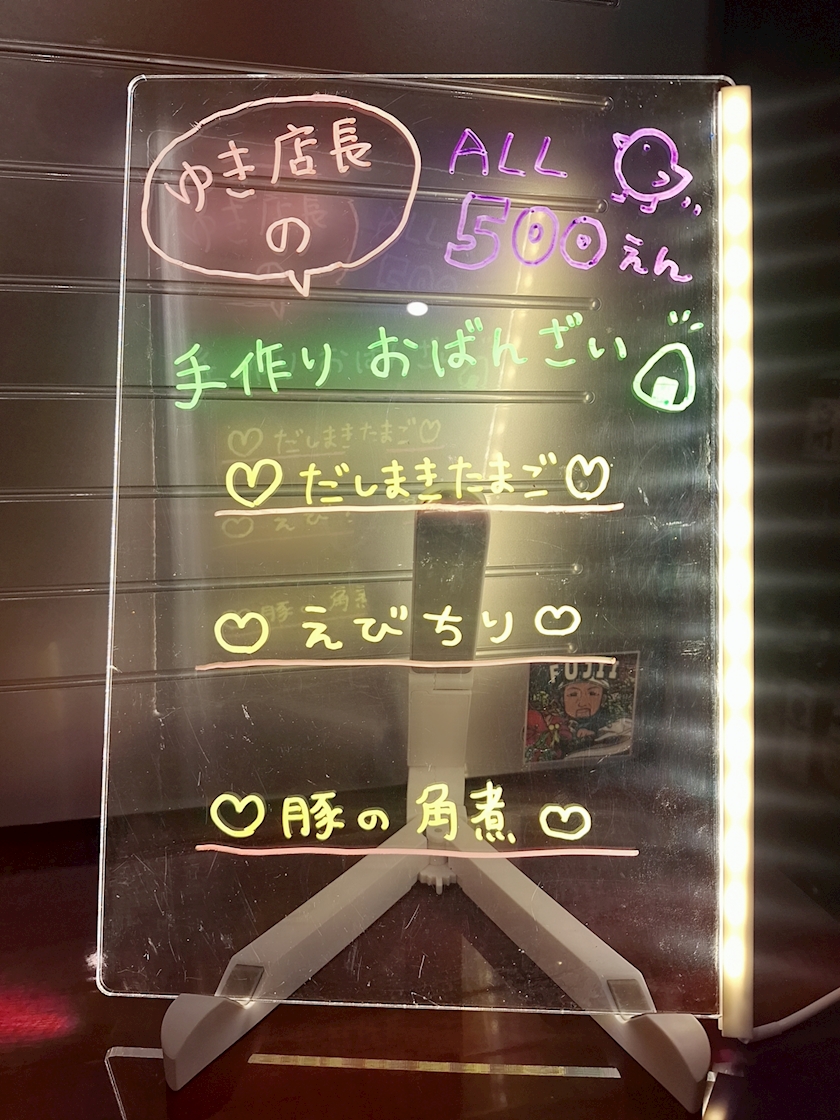 ゆき店長
の
ALL
500えん
手作り おばんざい
♡だしまきたまご♡
♡えびちり♡
FUJII
♡豚の角煮♡